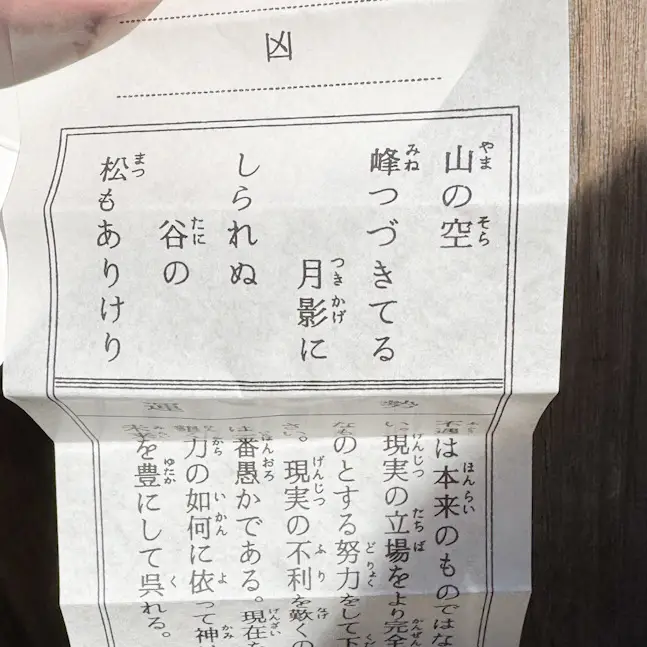 凶
山の空
峰つづきてる
月影に
しられぬ
谷の
松もありけり
運勢
不遇は本来のものではな
い。現実の立場をより完全
なものとする努力をして下
さい。現実の不利を歎くの
は番愚かである。現在を
力の如何に依って神
未来を豊にして呉れる。